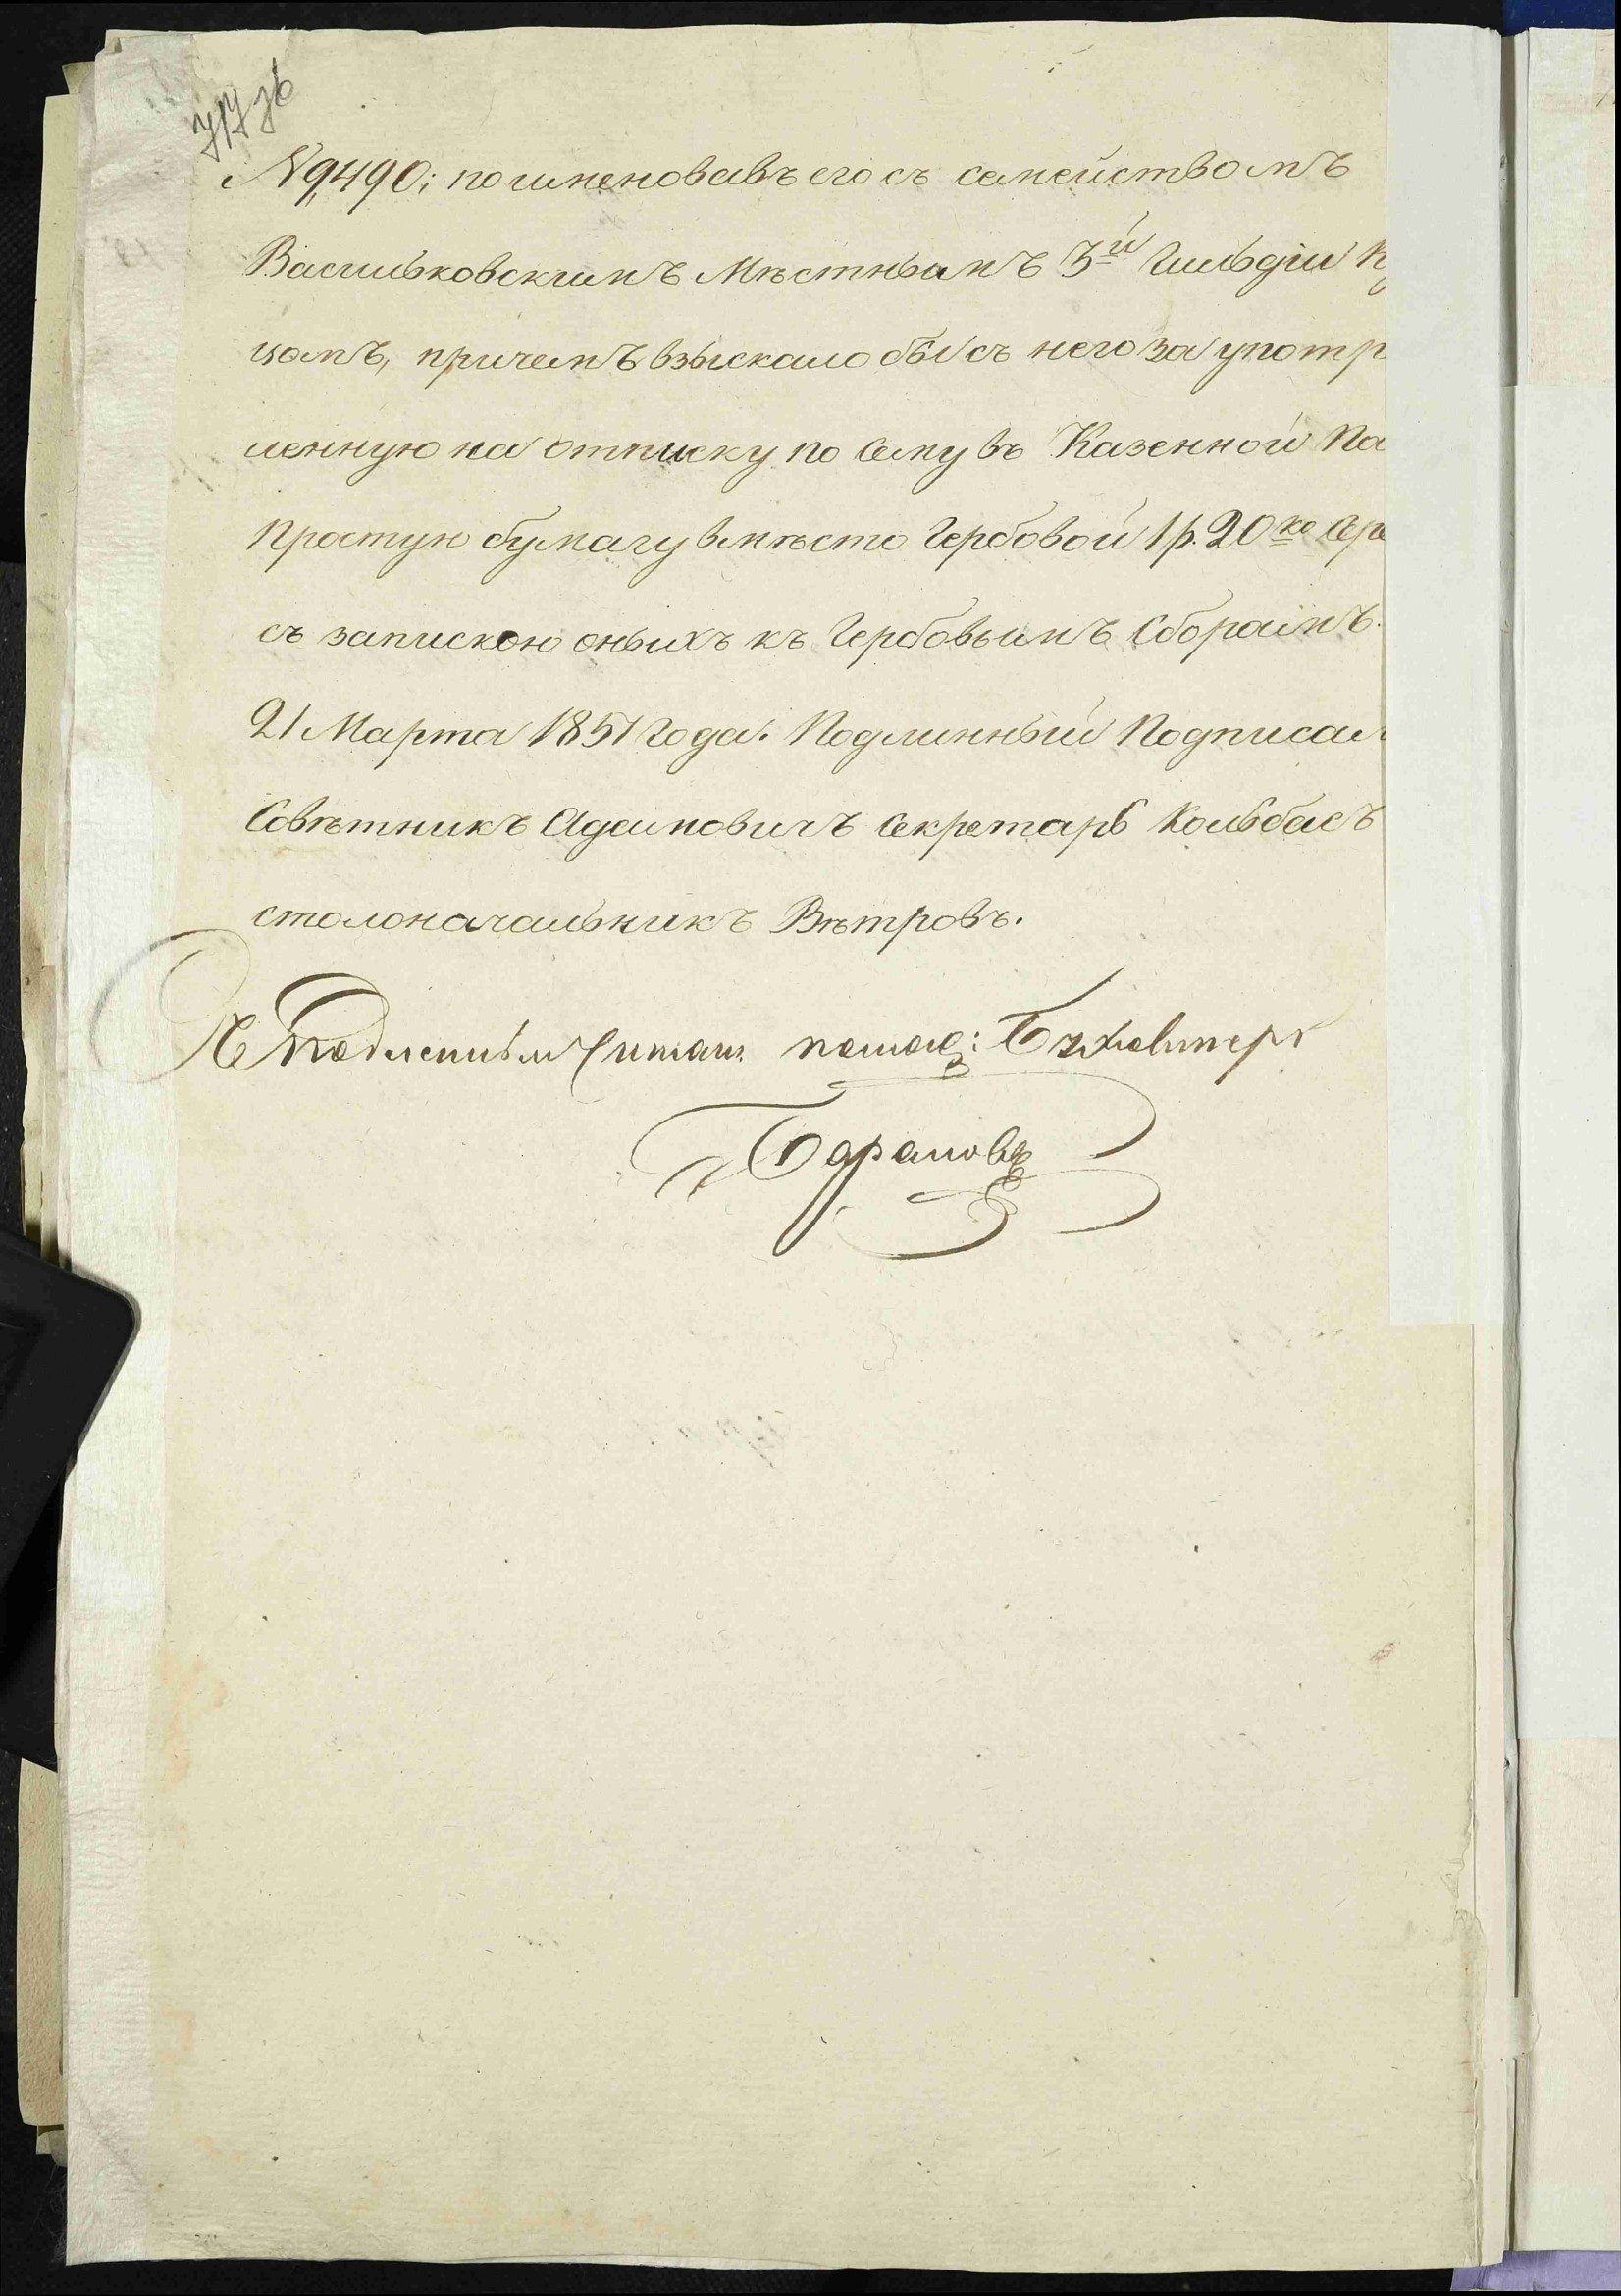 № 9490; поименовавъ его съ семействомъ
Васильковскимъ Мѣстнымъ 3й Гильдіи К
цомъ, причемъ взыскало бы съ него за употр
ленную на отписку по сему въ Казенной Па
простую бумагу вмѣсто Гербовой 1 р. 20 ко сере
съ запискою оныхъ къ Гербовымъ Сборамъ.
21 Марта 1851 Года. Подлинный Подписал
Совѣтникъ Адамовичъ Секретарь Колбасъ
столоначальникъ Вѣтровъ.
Съ Подленнымъ Читалъ помощ: Бухгалтера
Барановъ